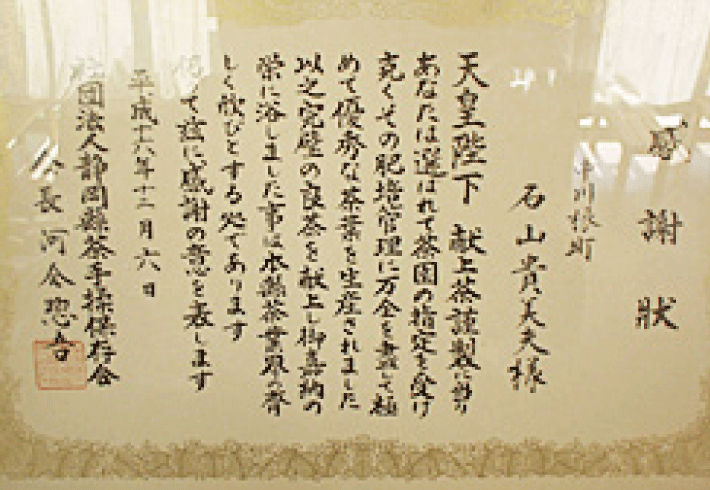 感謝状
中川根町
石山貴美夫様
天皇陛下 献上茶謹製に当り
あなたは選ばれて茶園の指定を受け
克くその肥培管理に万全を盡して極
めて優秀な茶葉を生産されました
以之完璧の良茶を献上し御嘉納の
栄に浴しました事は本縣茶業界の齊
しく欣びとする処であります
て茲に感謝の意を表します
平成十六年十二月六日
社団法人静岡縣茶手揉保存会
会長 河合惣吾